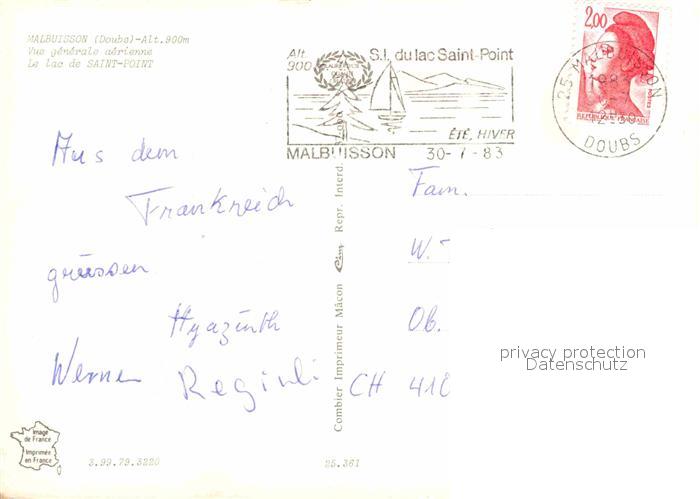 MALBUISSON (Doubs)-Alt.900m
Vue générale aérienne
Le lac de SAINT-POINT
Alt.
900
S.I. du lac Saint-Point
ÉTÉ, HIVER
MALBUISSON 30-7-83
2,00
POSTES
REPUBLIQUE FRANCAISE
25 MALBUISSON
DOUBS
Aus dem
Frankreich
grüssen
Hyazinth
Werner
Fam.
W.
Ob.
CH 410
Combier Imprimeur Mâcon Cim Repr. Interd.
privacy protection
Datenschutz
Image
de France
Imprimée
en France
3.99.79.3220
25.361